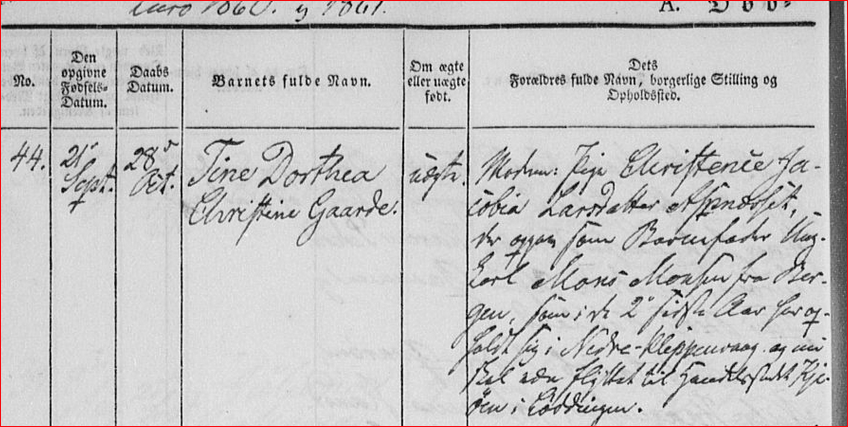 Aaro 1860. og 1861. A. Døb-
No.
Den
opgivne
Fødsels-
Datum.
Daabs
Datum.
Barnets fulde Navn.
Om ægte
eller uægte
født.
Dets
Forældres fulde Navn, borgerlige Stilling og
Opholdssted.
44.
21'
Sept.
28'
Oct.
Tine Dorthea
Christine Gaarde.
uægte.
Modren: Pige Christence Ja-
cobia Larsdatter
der opgav som Barnefader Ung-
karl Mons Monsen fra Ber-
gen, som i de 2' sidste Aar har op-
holdt sig i Nedre-Kleppenvaag og nu
skal være flyttet til Handelsstedet Kje-
øen i Lødingen.